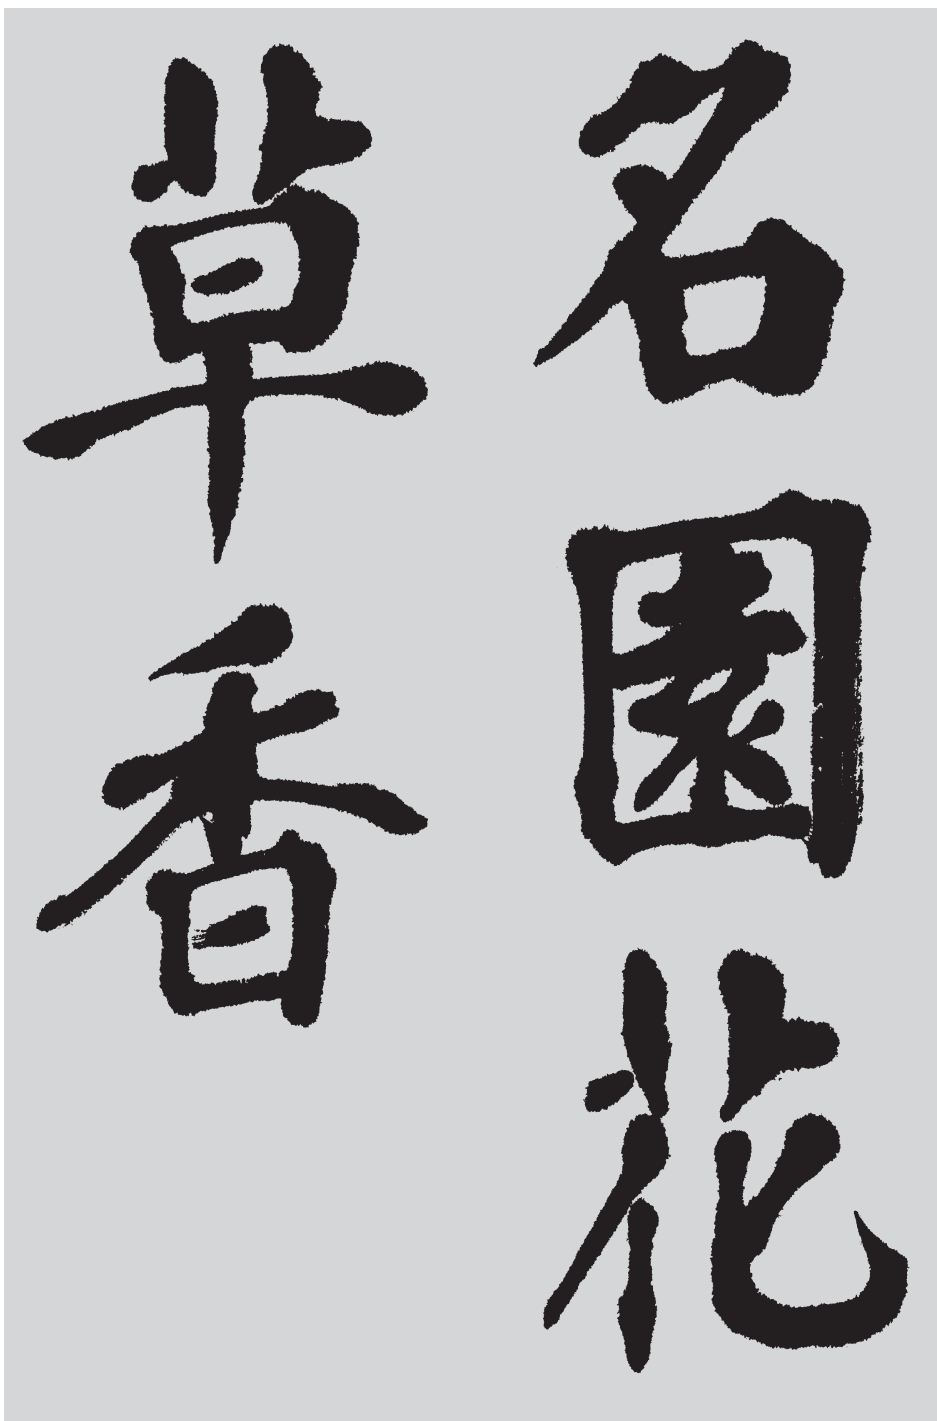 名園花
草香